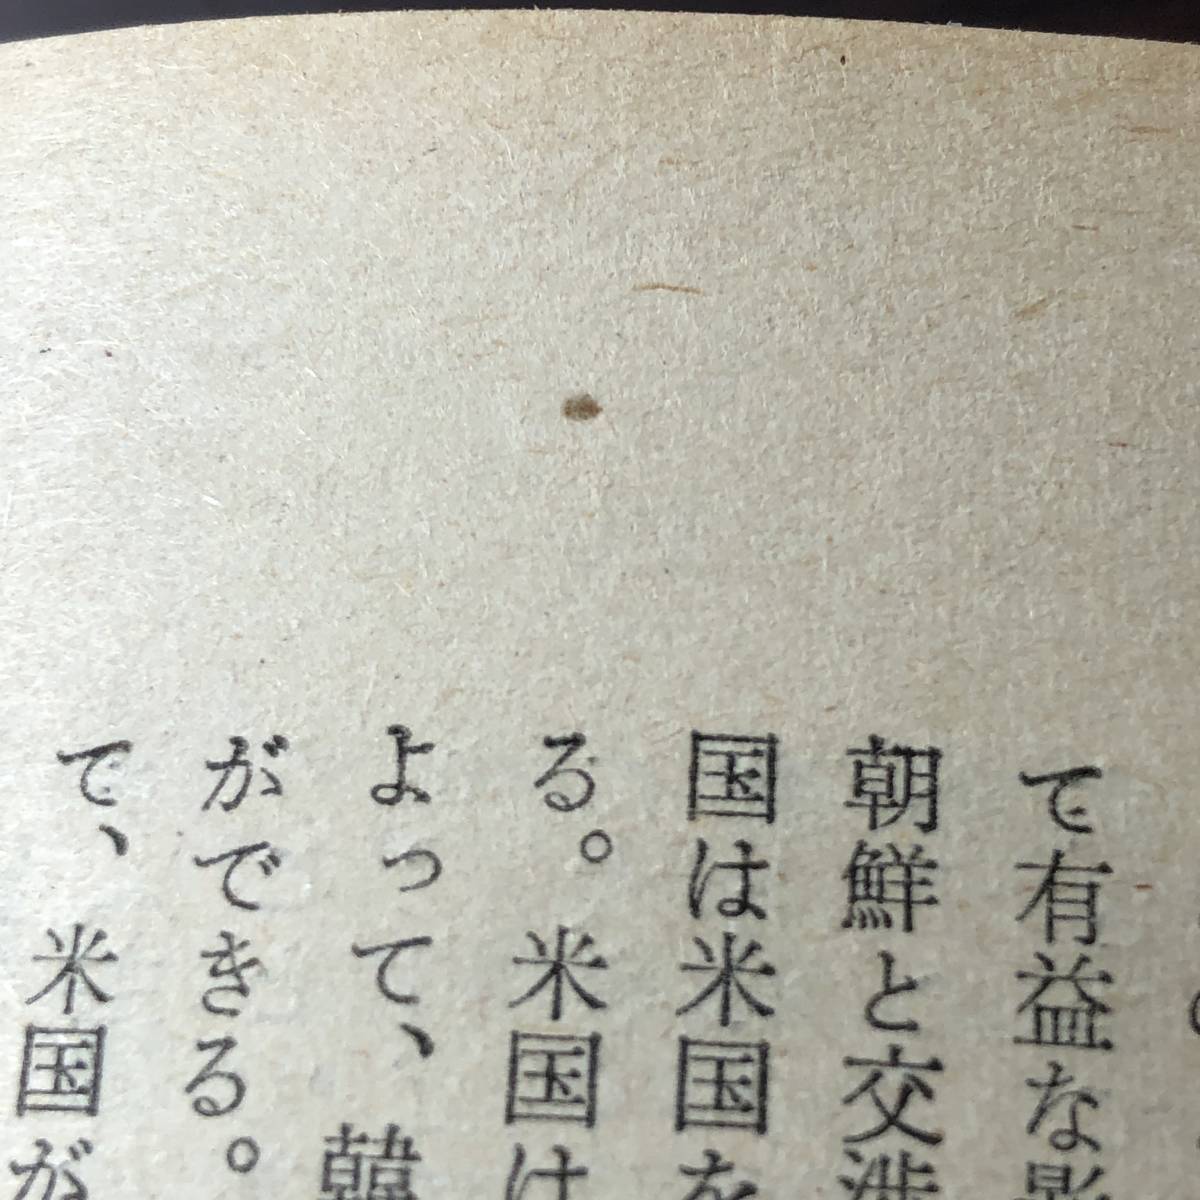 て有益な影
朝鮮と交渉
国は米国を
る。米国は
よって、韓
ができる。
て、米国が